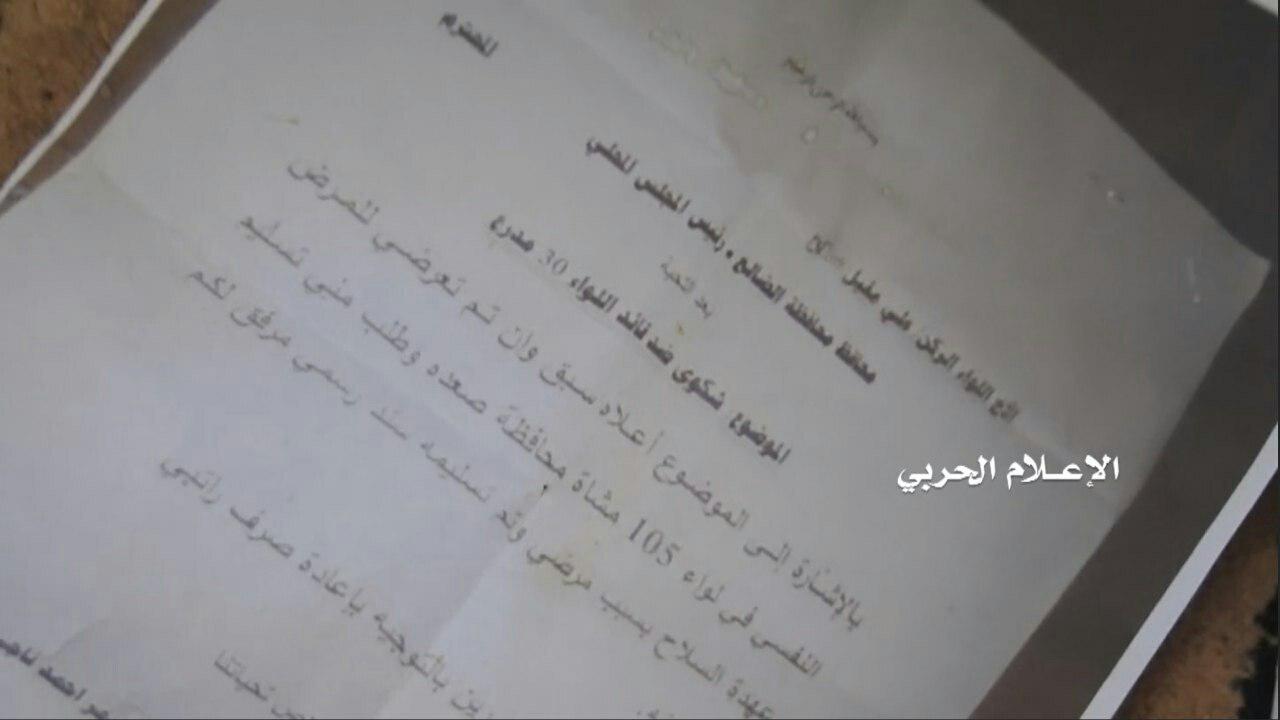 بسم الله الرحمن الرحيم
الاخ اللواء الركن علي مقبل صالح
محافظ محافظة الضالع ، رئيس المجلس المحلي
المحترم
بعد التحية
الموضوع شكوى ضد قائد اللواء 30 مدرع
بالإشارة إلى الموضوع أعلاه سبق وان تم تعرضي للمرض
النفسي في لواء 105 مشاة محافظة صعده وطلب مني تسليم
عهدة السلاح بسبب مرضي وتم تسليمه سند رسمي مرفق لكم
بالتوجيه بإعادة صرف راتبي
تحياتنا
احمد
الإعلام الحربي